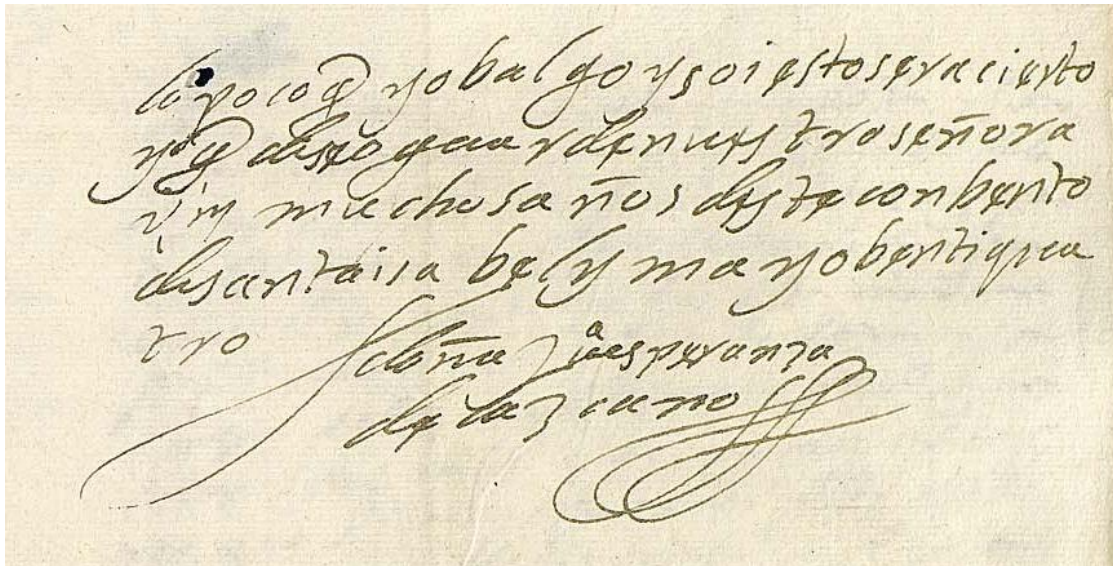 lo poco q yo balgo y soi esto sera cierto
y q deseo guarde nuestro señor a
vm muchos años deste conbento
de santa isabel y mayo bentiqua
tro
doña juª esperanza
de lazcano